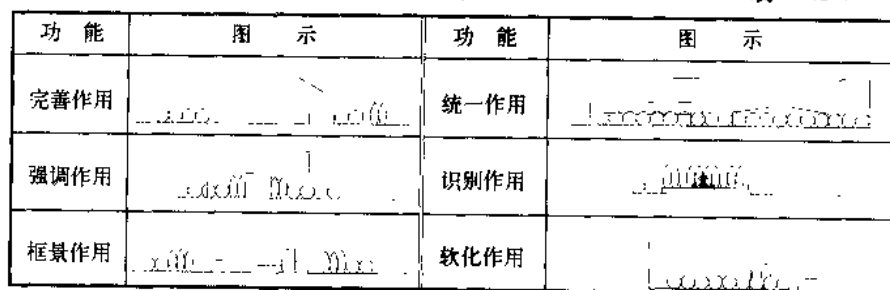 功 能 图 示 功 能 图 示
完善作用 统一作用
强调作用 识别作用
框景作用 软化作用